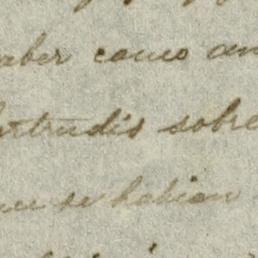 aber como an
ertrudis sobre
que se habian